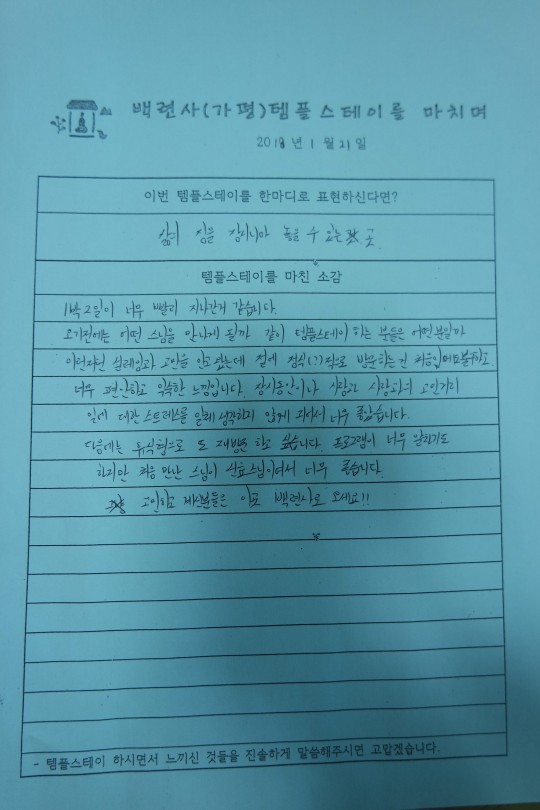 백련사(가평)템플스테이를 마치며
2018년 1월 21일
이번 템플스테이를 한마디로 표현하신다면?
삶의 짐을 잠시나마 놓을 수 있는 곳
템플스테이를 마친 소감
1박2일이 너무 빨리 지나간거 같습니다.
오기전에는 어떤 스님을 만나게 될까 같이 템플스테이 하는 분들은 어떤분일까
이런저런 설레임과 고민을 안고 왔는데 절에 정식(?)적으로 방문하는건 처음임에도불구하고
너무 편안하고 익숙한 느낌입니다. 잠시동안이나마
일에 대한 스트레스를 일체 생각하지 않게 되어서 너무 좋았습니다.
다음에는 휴식형으로 또 재방문 하고 싶습니다. 프로그램이 너무 알차기도
하지만 처음 만난 스님이 너무 좋습니다.
고민하고 계신분들은 이곳 백련사로 오세요!!
- 템플스테이 하시면서 느끼신 것들을 진솔하게 말씀해주시면 고맙겠습니다.